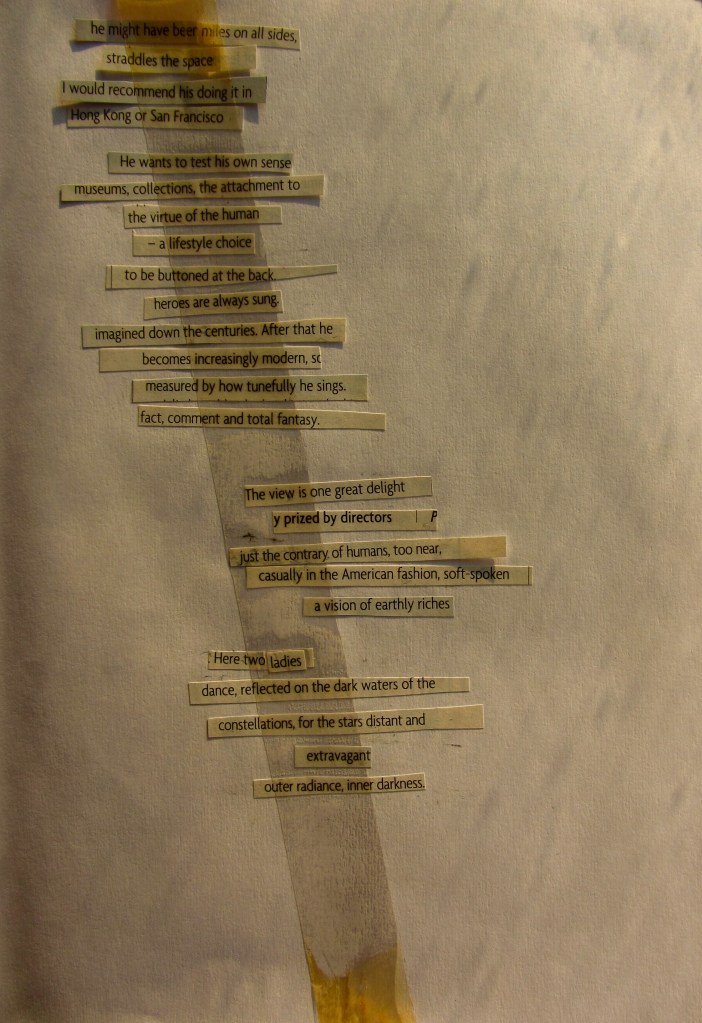 he might have beer miles on all sides,
straddles the space
I would recommend his doing it in
Hong Kong or San Francisco
He wants to test his own sense
museums, collections, the attachment to
the virtue of the human
– a lifestyle choice
to be buttoned at the back.
heroes are always sung.
imagined down the centuries. After that he
becomes increasingly modern, sc
measured by how tunefully he sings.
fact, comment and total fantasy.
The view is one great delight
y prized by directors | P
just the contrary of humans, too near,
casually in the American fashion, soft-spoken
a vision of earthly riches
Here two ladies
dance, reflected on the dark waters of the
constellations, for the stars distant and
extravagant
outer radiance, inner darkness.